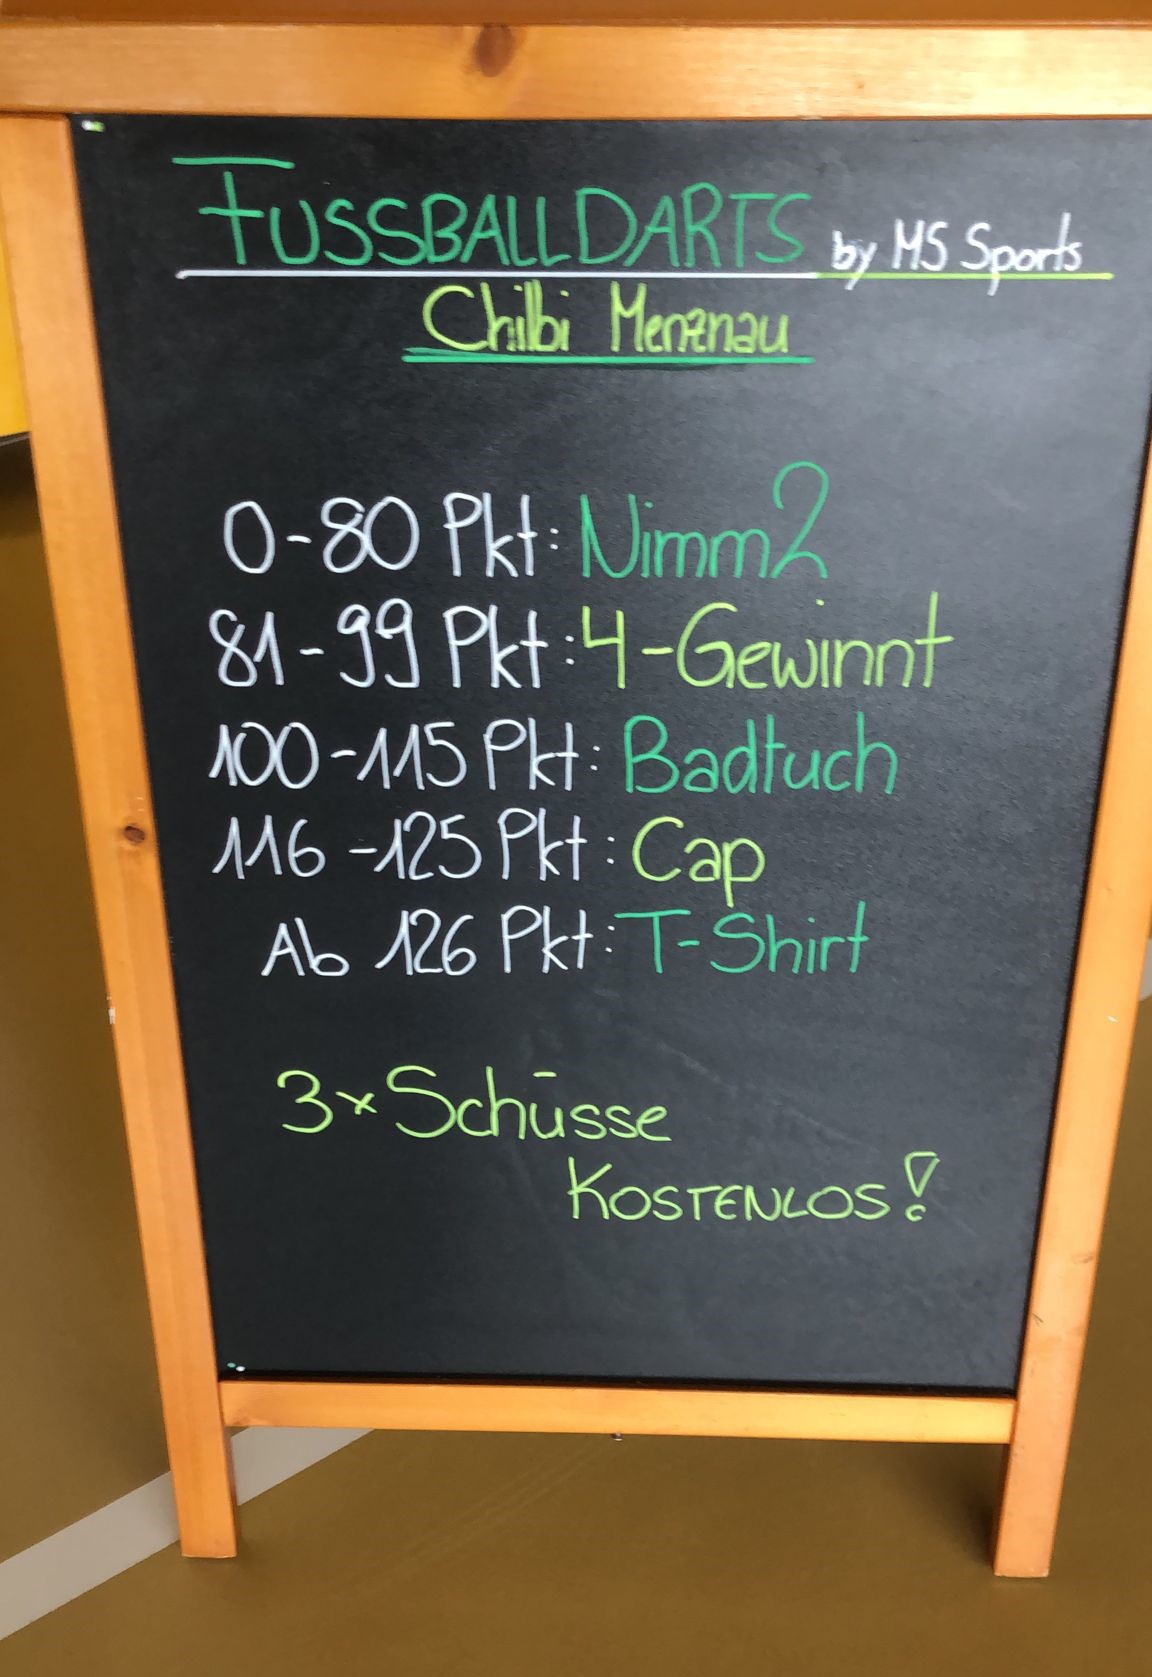 FUSSBALLDARTS by MS Sports
Chilbi Menznau
0-80 Pkt: Nimm2
81-99 Pkt: 4-Gewinnt
100-115 Pkt: Badtuch
116-125 Pkt: Cap
Ab 126 Pkt: T-Shirt
3x Schüsse
KOSTENLOS!